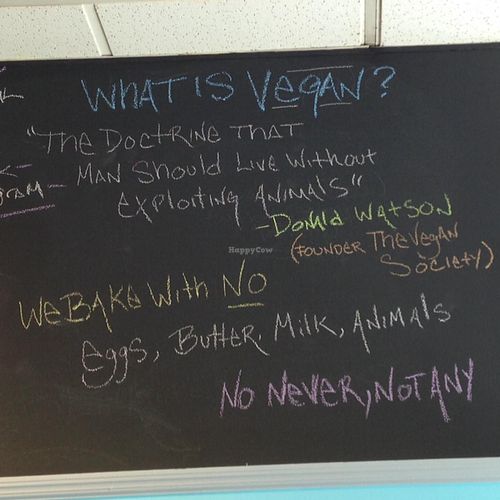 WHAT IS VEGAN?
"THE DOCTRINE THAT
MAN SHOULD LIVE WITHOUT
EXPLOITING ANIMALS"
-DONALD WATSON
(FOUNDER THE VEGAN
SOCIETY)
WE BAKE WITH NO
EGGS, BUTTER, MILK, ANIMALS
NO NEVER, NOT ANY
HappyCow